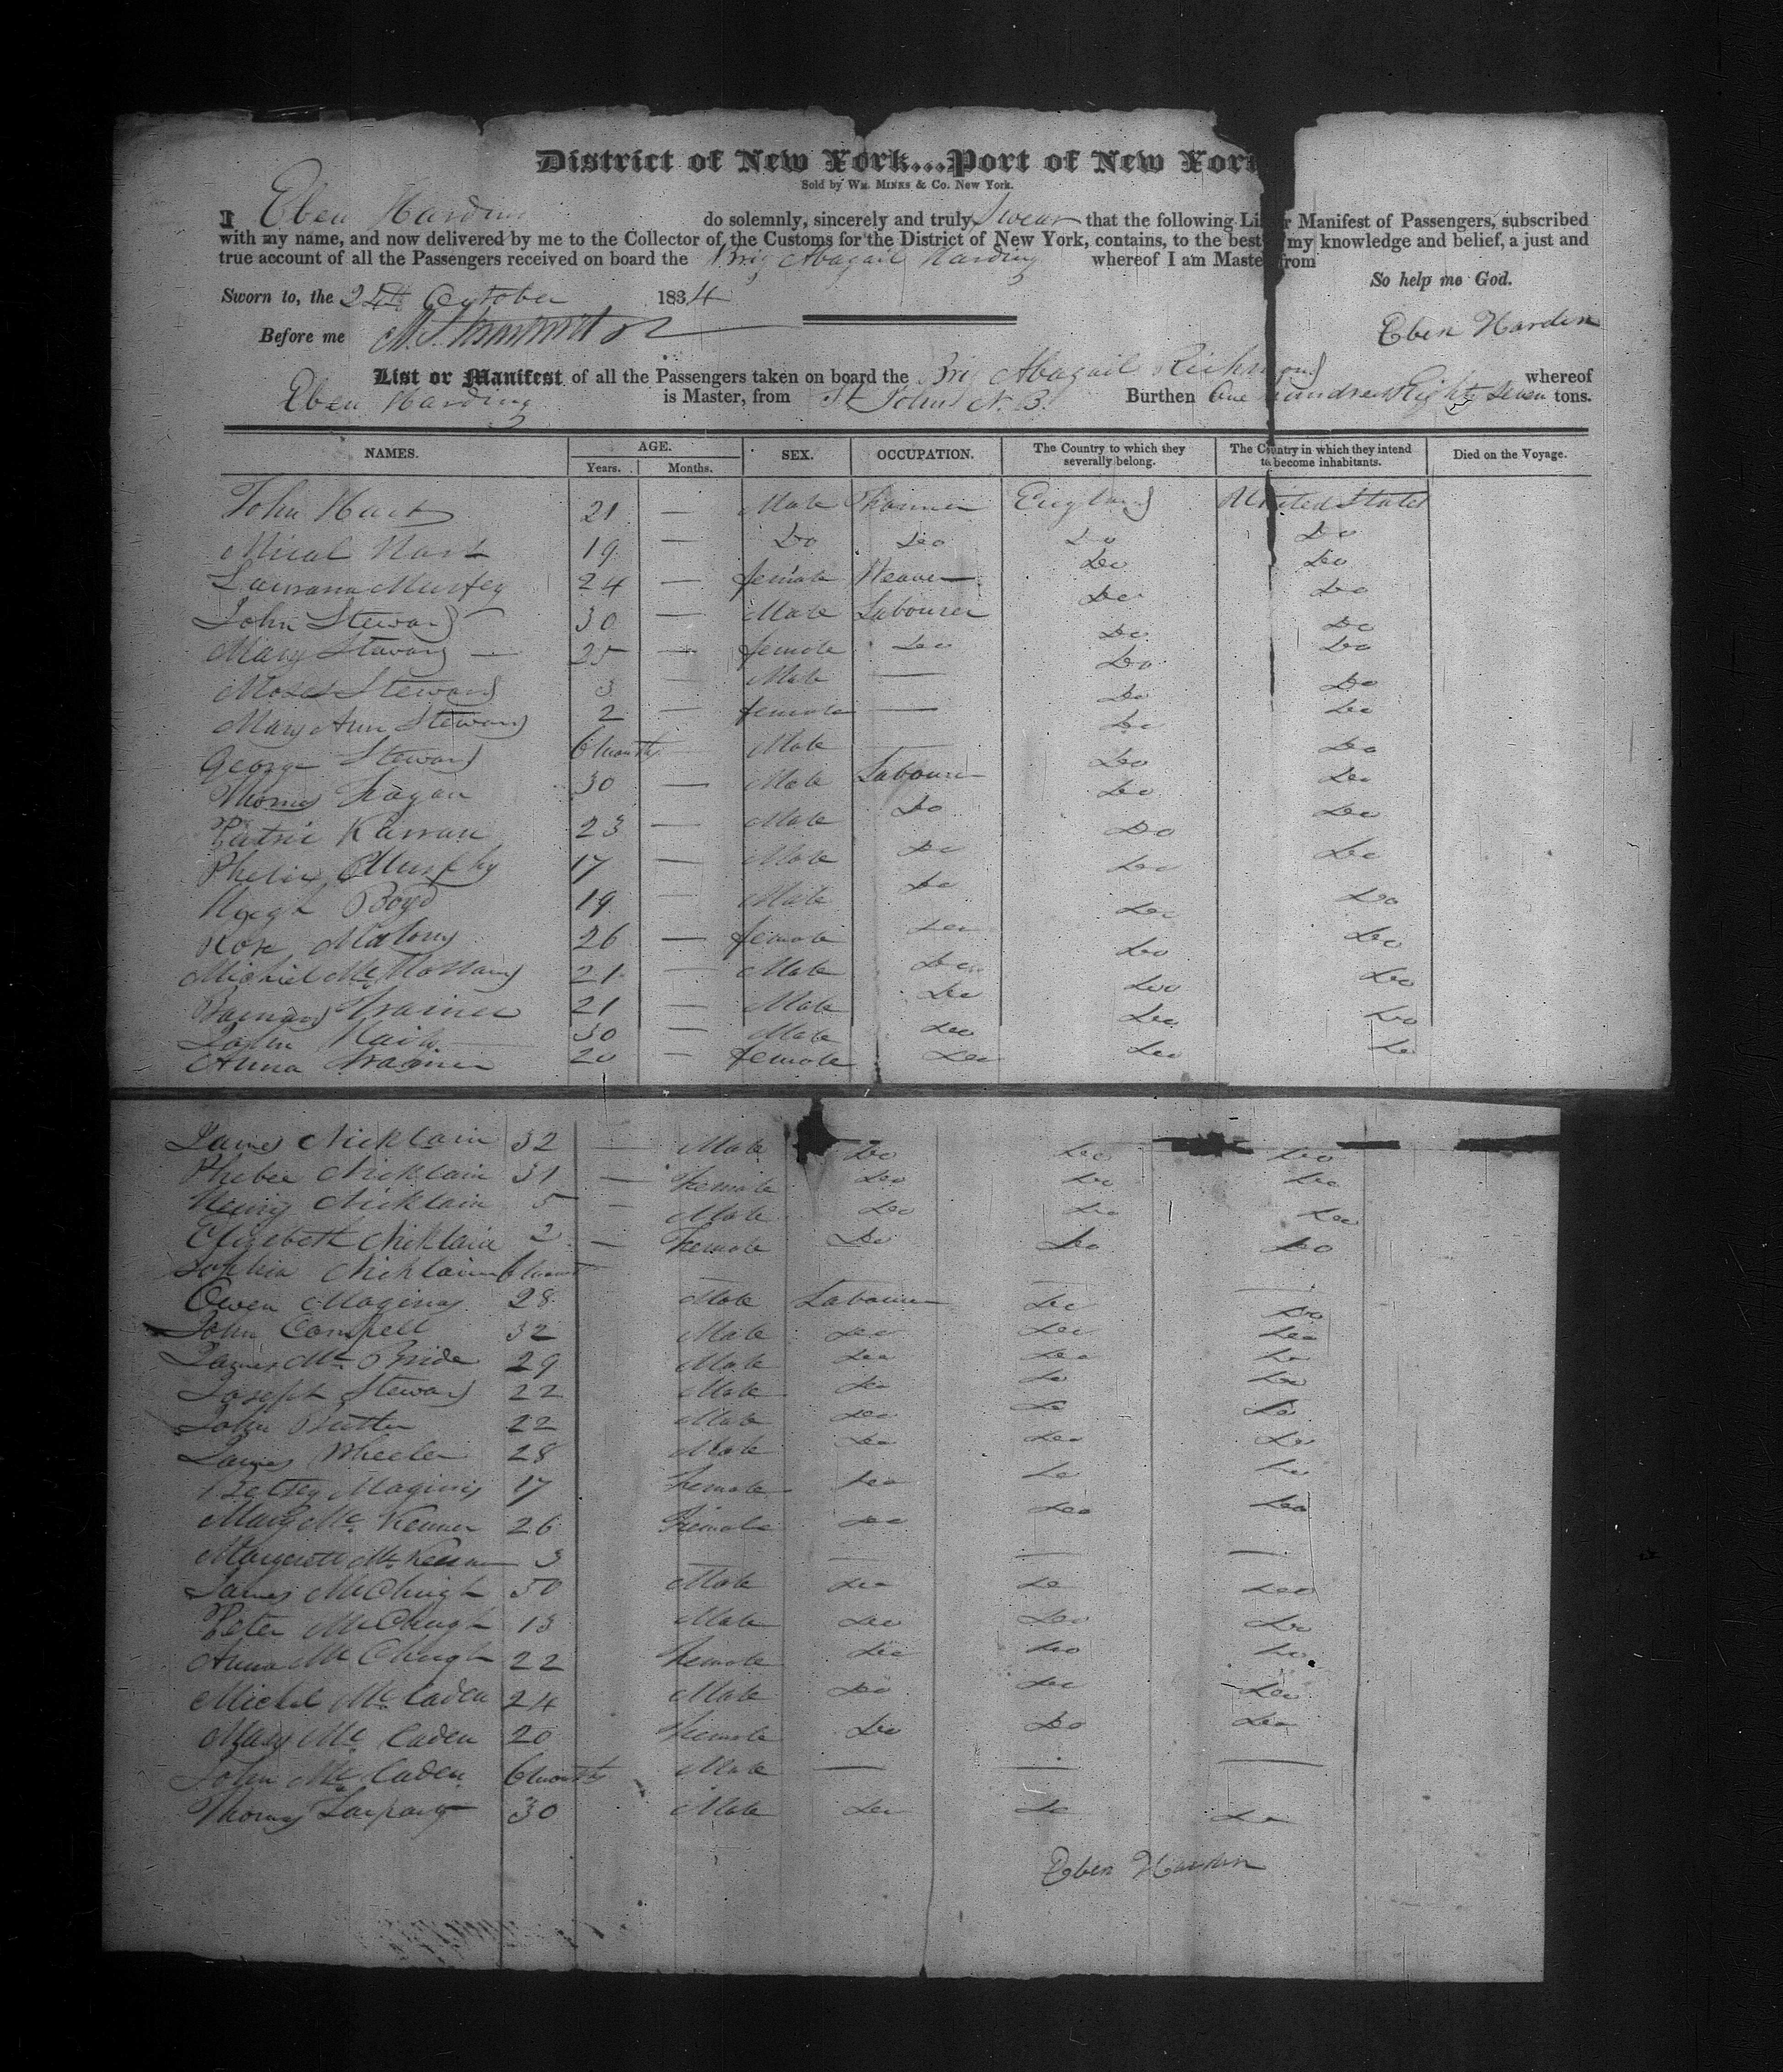 District of New York...Port of New Yor
Sold by Wm. Minns & Co. New York.
I Eben Harding do solemnly, sincerely and truly Swear that the following Li r Manifest of Passengers, subscribed
with my name, and now delivered by me to the Collector of the Customs for the District of New York, contains, to the best my knowledge and belief, a just and
true account of all the Passengers received on board the Brig Abagail Harding whereof I am Maste from
So help me God.
Sworn to, the October 1834
Before me
Eben Harden
List or Manifest of all the Passengers taken on board the Brig Abagail Richmond whereof
Eben Harding is Master, from St Johns N. B. Burthen One hundred Eighty Seven tons.
NAMES. AGE. SEX. OCCUPATION. The Country to which they severally belong. The Country in which they intend to become inhabitants. Died on the Voyage.
Years. Months.
John Hart 21 — Male England United States
Hart 19 — Do Do Do Do
24 — female Weaver Do Do
John Steward 30 — Male Labourer Do Do
Mary Steward — 25 — female Do Do Do
Moses Steward 3 — Male — Do Do
Mary Ann Steward 2 — female — Do Do
George Steward 6 months — Male — Do Do
Thomas Hagan 30 — Male Labourer Do Do
Patric 23 — Male Do Do Do
Phelix Murphy 17 — Male Do Do Do
Hugh Boyd 19 — Male Do Do Do
Rose 26 — female Do Do Do
21 — Male Do Do Do
Trainer 21 — Male Do Do Do
John 30 — Male Do Do Do
Anna Trainer 20 — female Do Do Do
James Nicklain 32 — Male Do Do Do
Phebee Nicklain 31 — Female Do Do Do
Henry Nicklain 5 — Male Do Do Do
Elizebeth Niklain 2 — Female Do Do Do
Sophia Nicklain 6 —
Owen Maginis 28 Male Labourer Do Do
John Compell 32 Male Do Do Do
James Mc Bride 29 Male Do Do Do
Joseph Steward 22 Male Do Do Do
John Butler 22 Male Do Do Do
James Wheeler 28 Male Do Do Do
Betsey Maginis 17 Female Do Do Do
Mary Mc Kenner 26 Female Do Do Do
Margerett Mc 3 — — — —
James McChugh 50 Male Do Do Do
Peter McChugh 13 Male Do Do Do
Anna McChugh 22 Female Do Do Do
Michel Mc Caden 24 Male Do Do Do
Mary Mc Caden 20 Female Do Do Do
John Mc Caden 6 months Male — — —
Thomas 30 Male Do Do Do
Eben Harden